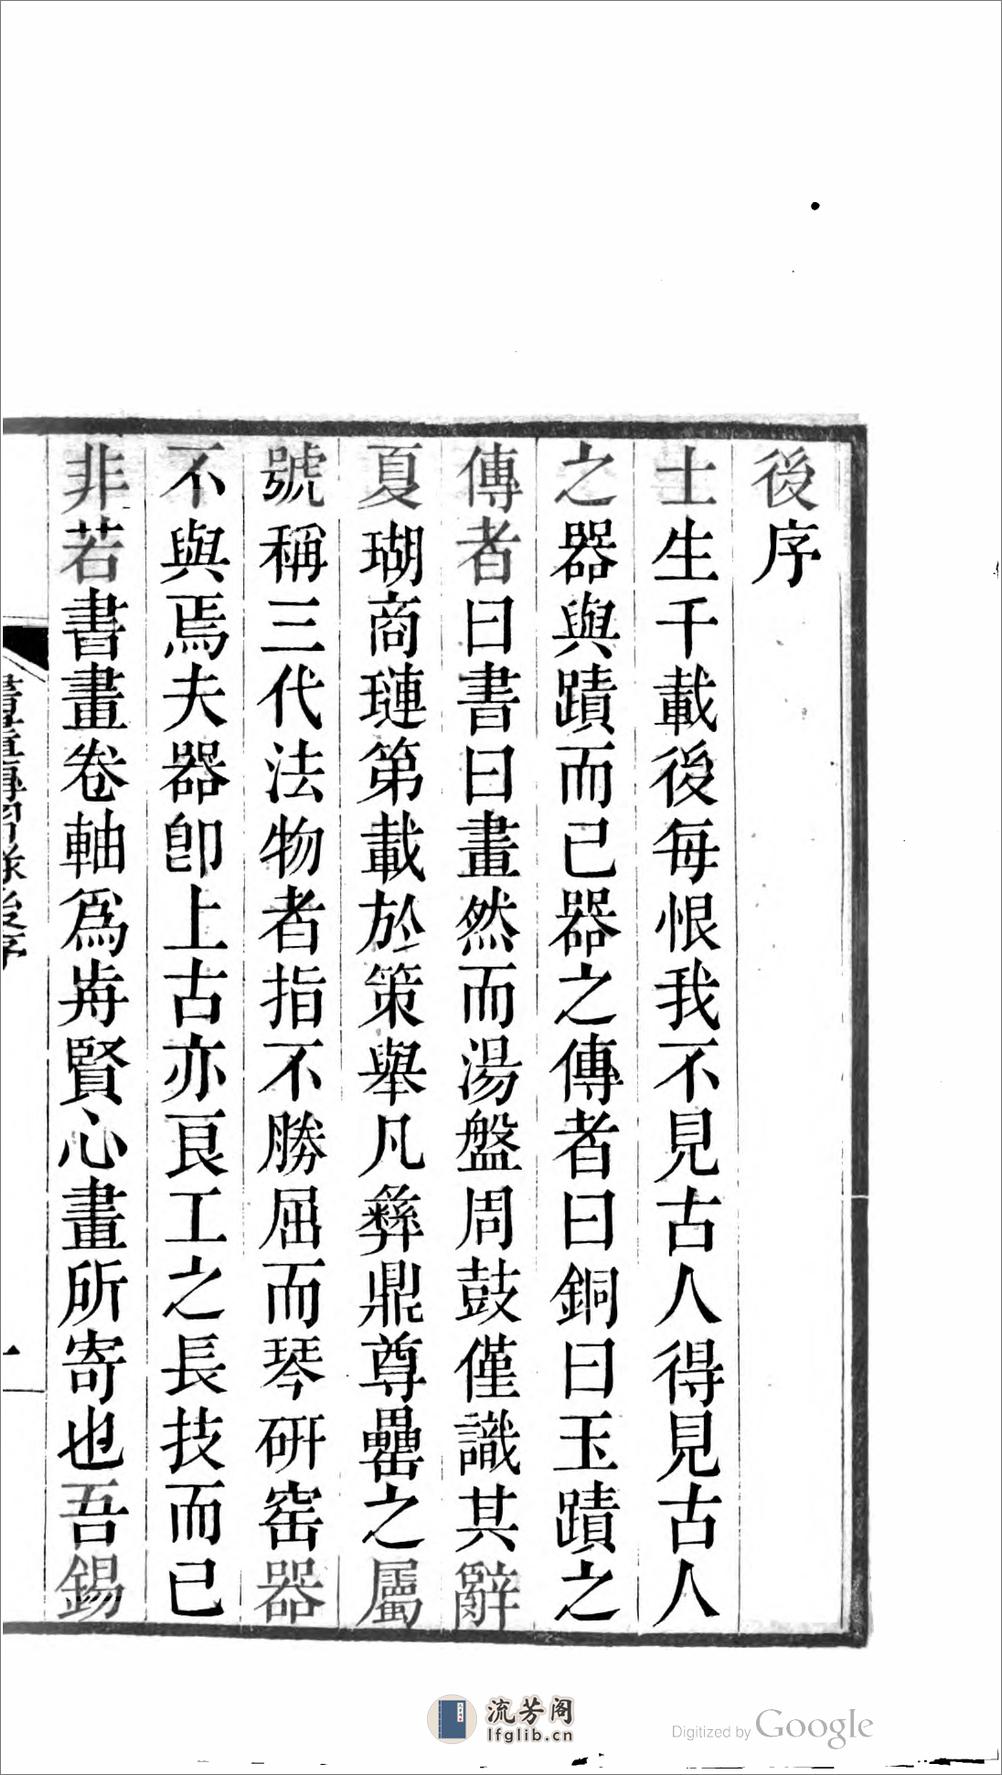 後序
士生千載後每恨我不見古人得見古人
之器與蹟而已器之傳者曰銅曰玉蹟之
傳者曰書曰畫然而湯盤周鼓僅識其辭
夏瑚商璉第載於策舉凡彝鼎尊罍之屬
號稱三代法物者指不勝屈而琴硏窑器
不與焉夫器卽上古亦良工之長技而已
非若書畫卷軸爲歬賢心畫所寄也吾錫
後序
一
流芳阁
lfglib.cn
Digitized by Google